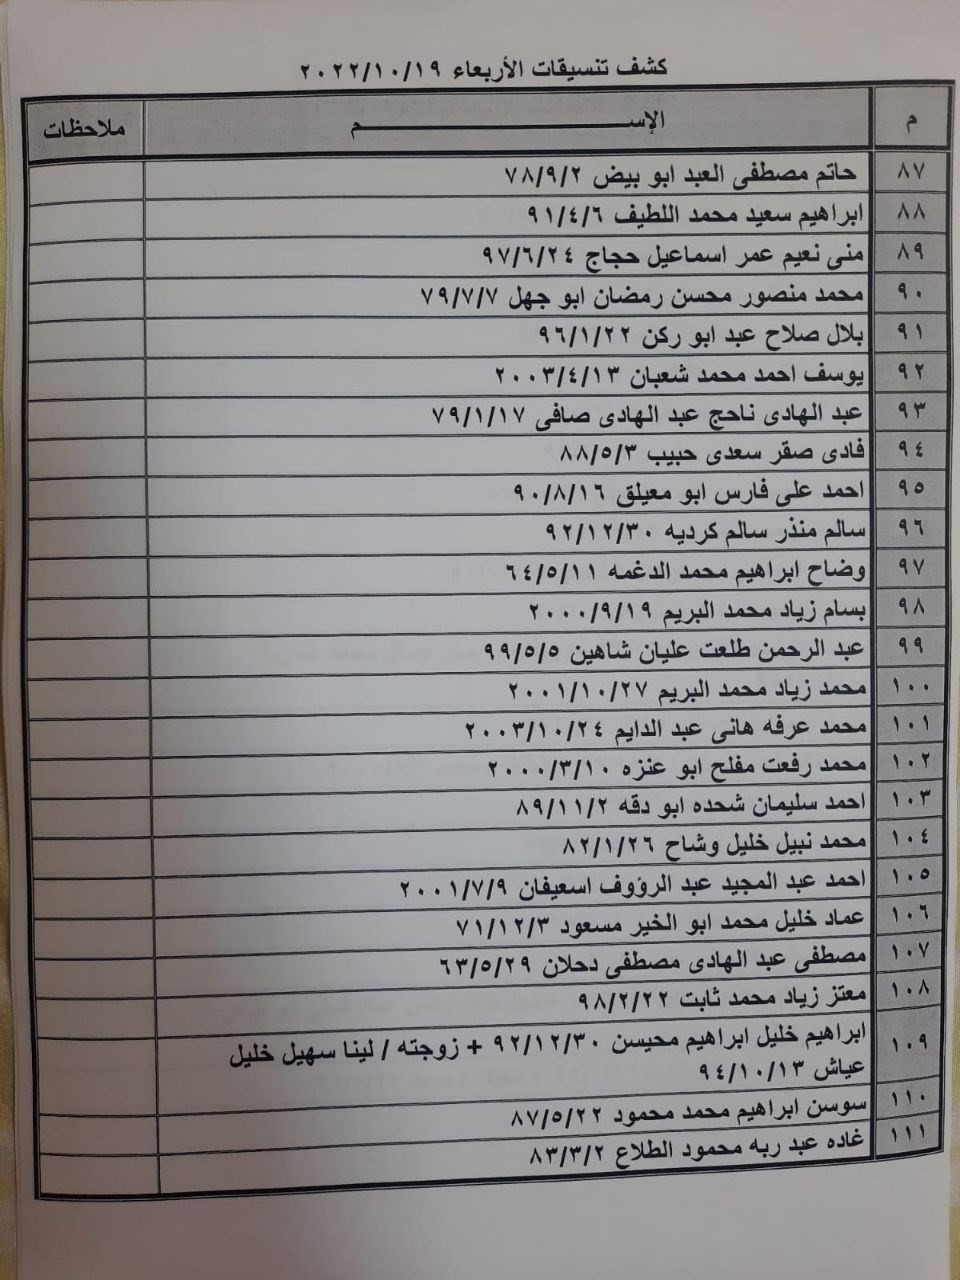 كشف تنسيقات الأربعاء ٢٠٢٢/١٠/١٩
م الإســـــــــم ملاحظات
٨٧ حاتم مصطفى العبد ابو بيض ٧٨/٩/٢
٨٨ ابراهيم سعيد محمد اللطيف ٩١/٤/٦
٨٩ منى نعيم عمر اسماعيل حجاج ٩٧/٦/٢٤
٩٠ محمد منصور محسن رمضان ابو جهل ٧٩/٧/٧
٩١ بلال صلاح عبد ابو ركن ٩٦/١/٢٢
٩٢ يوسف احمد محمد شعبان ٢٠٠٣/٤/١٣
٩٣ عبد الهادى ناحج عبد الهادى صافى ٧٩/١/١٧
٩٤ فادى صقر سعدى حبيب ٨٨/٥/٣
٩٥ احمد على فارس ابو معيلق ٩٠/٨/١٦
٩٦ سالم منذر سالم كرديه ٩٢/١٢/٣٠
٩٧ وضاح ابراهيم محمد الدغمه ٦٤/٥/١١
٩٨ بسام زياد محمد البريم ٢٠٠٠/٩/١٩
٩٩ عبد الرحمن طلعت عليان شاهين ٩٩/٥/٥
١٠٠ محمد زياد محمد البريم ٢٠٠١/١٠/٢٧
١٠١ محمد عرفه هانى عبد الدايم ٢٠٠٣/١٠/٢٤
١٠٢ محمد رفعت مفلح ابو عنزه ٢٠٠٠/٣/١٠
١٠٣ احمد سليمان شحده ابو دقه ٨٩/١١/٢
١٠٤ محمد نبيل خليل وشاح ٨٢/١/٢٦
١٠٥ احمد عبد المجيد عبد الرؤوف اسعيفان ٢٠٠١/٧/٩
١٠٦ عماد خليل محمد ابو الخير مسعود ٧١/١٢/٣
١٠٧ مصطفى عبد الهادى مصطفى دحلان ٦٣/٥/٢٩
١٠٨ معتز زياد محمد ثابت ٩٨/٢/٢٢
١٠٩ ابراهيم خليل ابراهيم محيسن ٩٢/١٢/٣٠ + زوجته / لينا سهيل خليل
عياش ٩٤/١٠/١٣
١١٠ سوسن ابراهيم محمد محمود ٨٧/٥/٢٢
١١١ غاده عبد ربه محمود الطلاع ٨٣/٣/٢